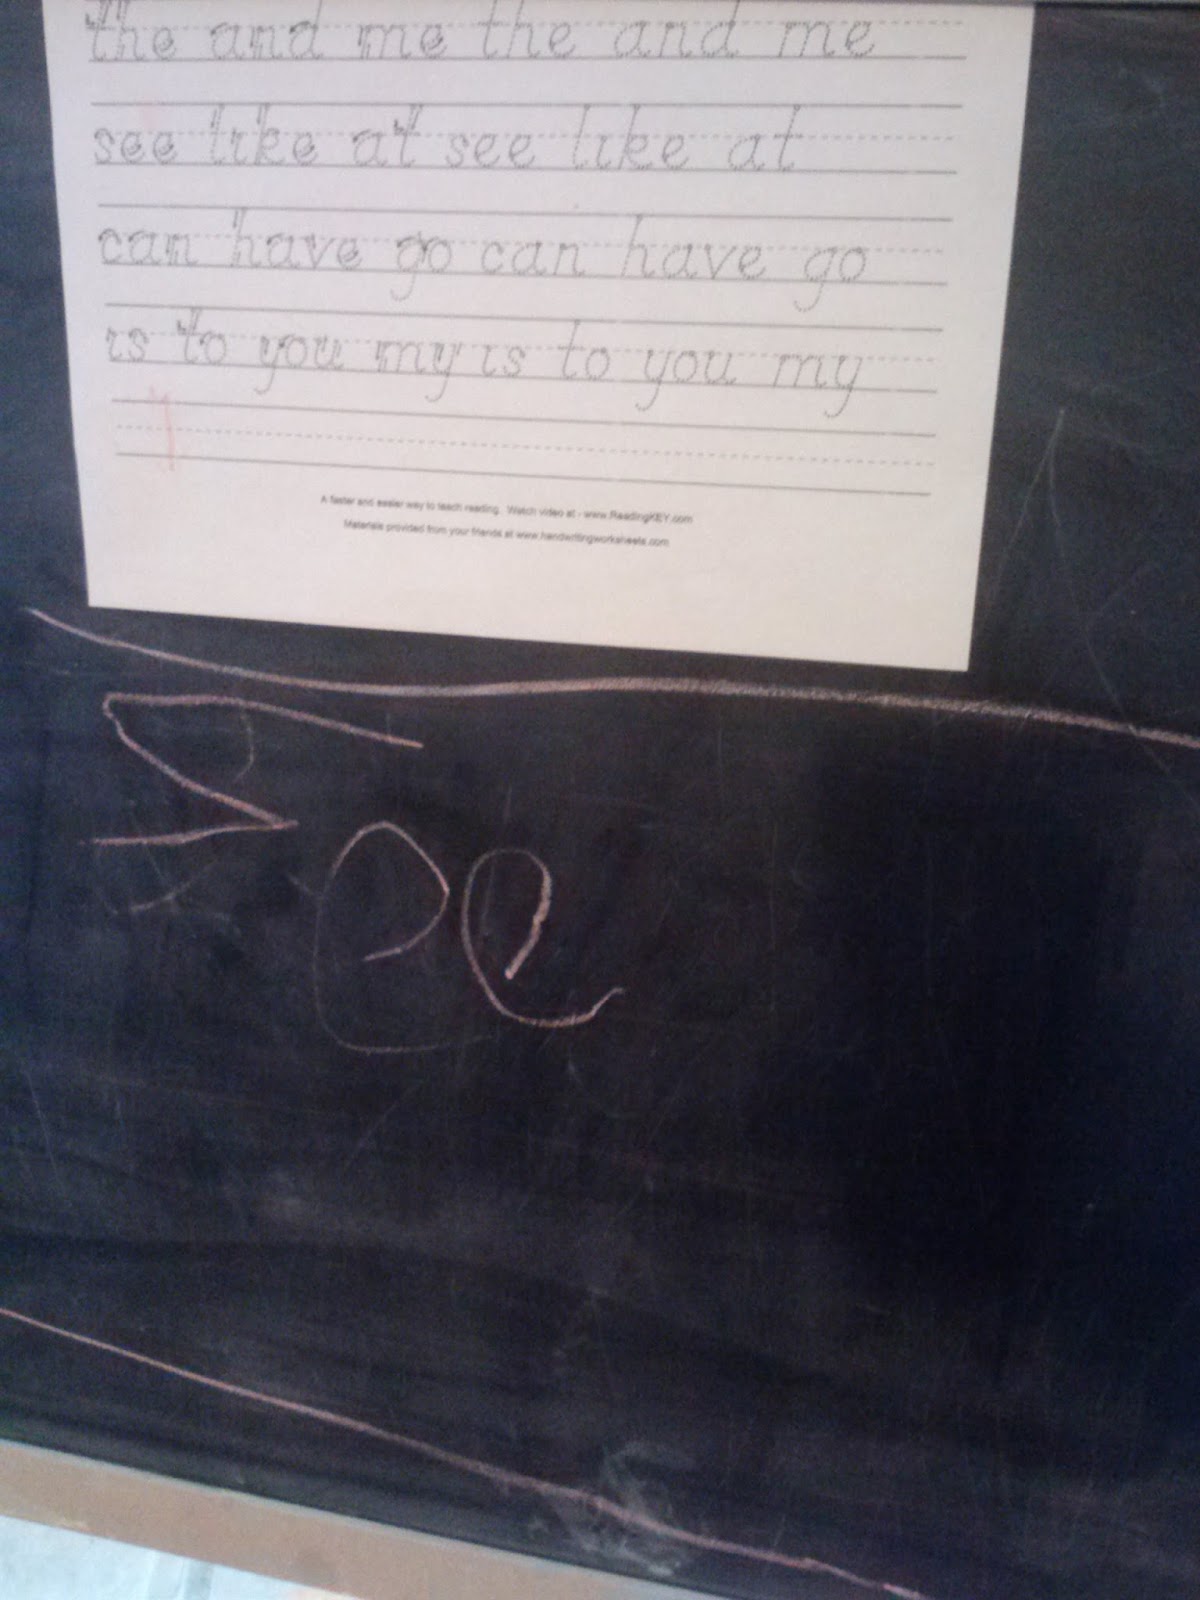 the and me the and me
see like at see like at
can have go can have go
is to you my is to you my
A faster and easier way to teach reading. Watch video at - www.ReadingKEY.com
Materials provided from your friends at www.handwritingworksheets.com
See